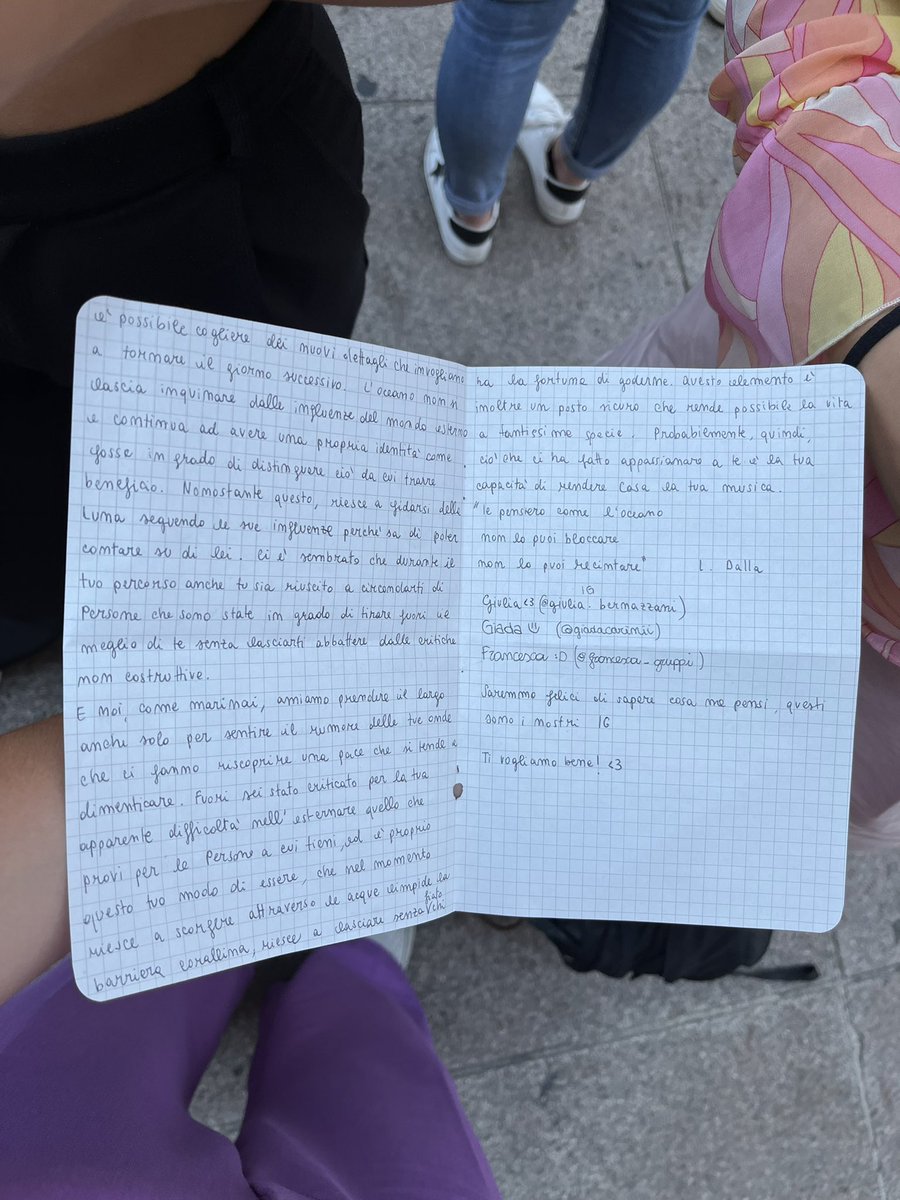 è possibile cogliere dei nuovi dettagli che invogliano
a tornare il giorno successivo. L'oceano non si
lascia inquinare dalle influenze del mondo esterno
e continua ad avere una propria identità come
fosse in grado di distinguere ciò da cui trarre
beneficio. Nonostante questo, riesce a fidarsi della
Luna seguendo le sue influenze perché sa di poter
contare su di lei. Ci è sembrato che durante il
tuo percorso anche tu sia riuscito a circondarti di
Persone che sono state in grado di tirare fuori il
meglio di te senza lasciarti abbattere dalle critiche
non costruttive.
E noi, come marinai, amiamo prendere il largo
anche solo per sentire il rumore delle tue onde
che ci fanno riscoprire una pace che si tende a
dimenticare. Fuori sei stato criticato per la tua
apparente difficoltà nell'esternare quello che
provi per le Persone a cui tieni, ed è proprio
questo tuo modo di essere, che nel momento
riesce a scorgere attraverso le acque limpide la
barriera corallina, riesce a lasciare senza fiato chi
ha la fortuna di goderne. Questo elemento è
inoltre un posto sicuro che rende possibile la vita
a tantissime specie. Probabilmente, quindi,
ciò che ci ha fatto appassionare a te è la tua
capacità di rendere casa la tua musica.
"le pensiero come l'oceano
non lo puoi bloccare
non lo puoi recintare" L. Dalla
IG
Giulia <3 (@giulia.bernazzani)
Giada (@giadacarinii)
Francesca :D (@francesca-gruppi)
Saremmo felici di sapere cosa ne pensi, questi
sono i nostri IG
Ti vogliamo bene! <3